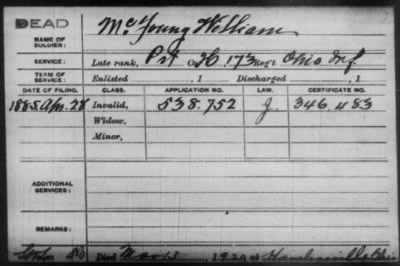 DEAD
NAME OF SOLDIER: McYoung William
SERVICE: Late rank, Pvt Co H, 173 Reg't Ohio Inf
TERM OF SERVICE: Enlisted , 1 Discharged , 1
DATE OF FILING. CLASS. APPLICATION NO. LAW. CERTIFICATE NO.
1885 Apr. 28 Invalid, 538.752 J. 346.483
Widow,
Minor,
ADDITIONAL SERVICES:
REMARKS:
Died Mar 13 1920 at